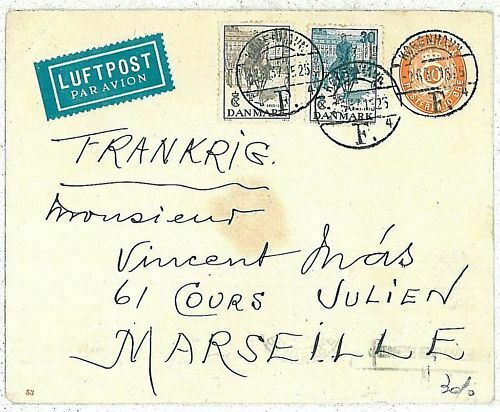 LUFTPOST
PAR AVION
KØBENHAVN
30
DANMARK
DANMARK
KØBENHAVN
F.
F.
F.
4
4
FRANKRIG.
Monsieur
Vincent Más
61 COURS JULIEN
MARSEILLE
52